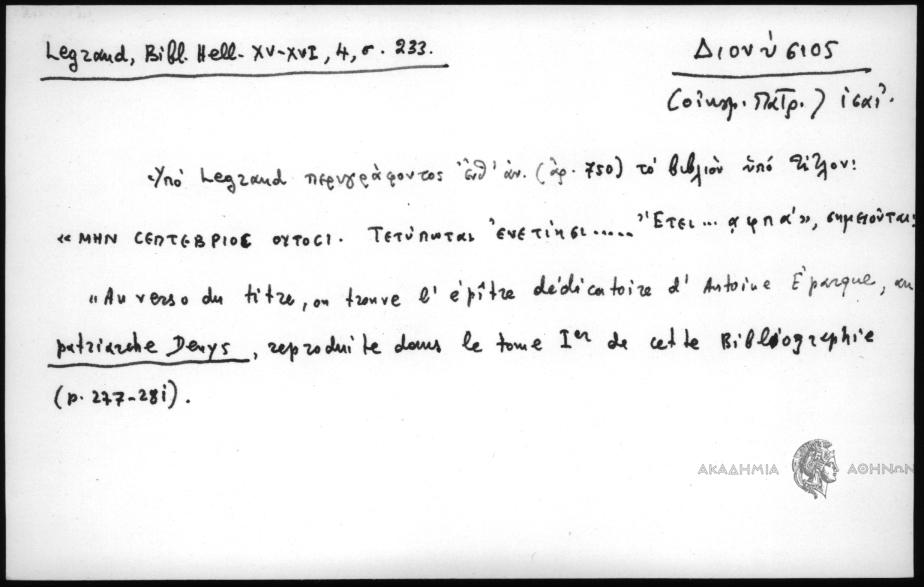 Legrand, Bibl. Hell. XV-XVI, 4, σ. 233.
Διονύσιος
(οἰκουμ. Πατρ.)
Ὑπό Legrand περιγράφοντος ἐνθ' ἀν. (ἀρ. 750) τό βιβλίον ὑπό τίτλον:
«ΜΗΝ CΕΠΤΕΒΡΙΟC ΟΥΤΟCΙ. Τετύπωται Ἐνετίῃσι ..... Ἔτει ... ͵αφπα'», σημειοῦται:
«Au verso du titre, on trouve l'épître dédicatoire d'Antoine Éparque, au
patriarche Denys, reproduite dans le tome Ier de cette Bibliographie
(p. 277-281).
ΑΚΑΔΗΜΙΑ ΑΘΗΝΩΝ